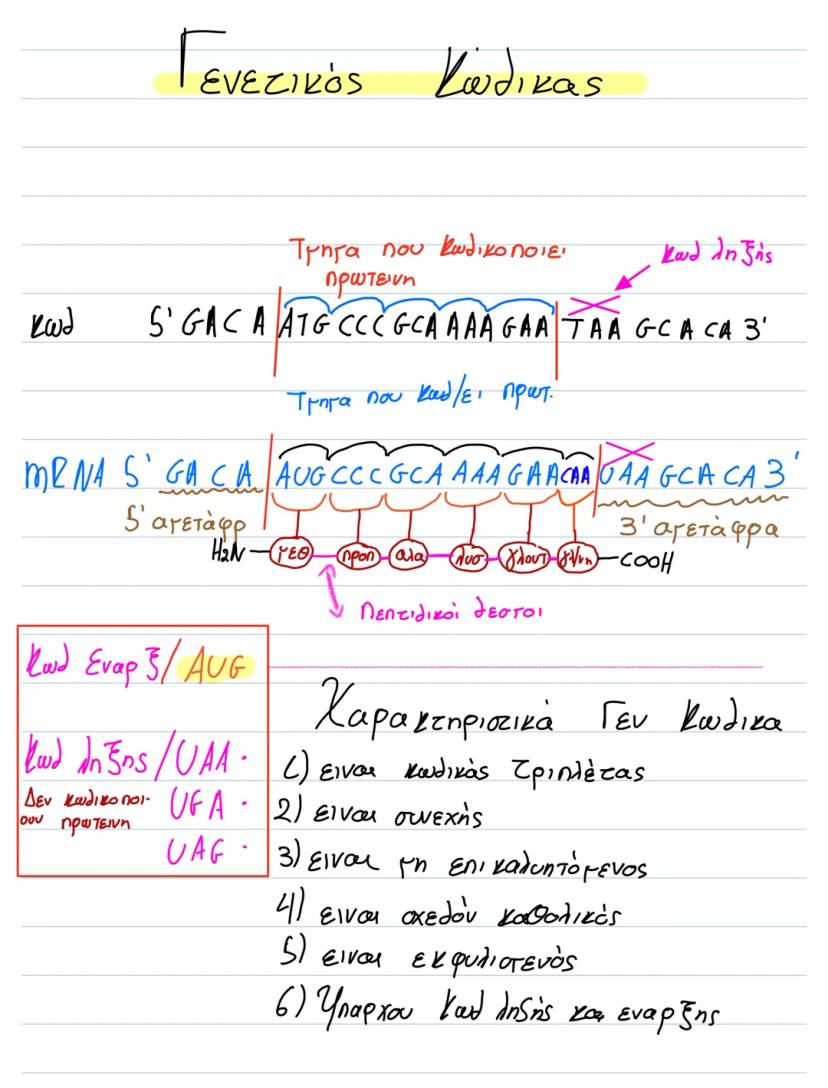 Γενετικός Κώδικας
Τμημα που κωδικοποιει
πρωτεινη
κωδ ληξής
κωδ 5' GACA ATG CCC GCA AAA GAA TAA GCACA 3'
Τμημα που κωδ/ει πρωτ.
mRNA 5' GACA AUG CCC GCA AAA GAA CAA UAA GCACA 3'
5' αμετάφρ
3' αμετάφρα
H2N μεθ προλ αλα λυσ γλουτ COOH
Πεπτιδικοί δεσμοι
Κωδ εναρξ/AUG
Κωδ ληξης/UAA.
Δεν κωδικοποι-
ουν πρωτεινη
UGA.
UAG.
Χαρακτηριστικά Γεν Κωδικα
1) ειναι κωδικάς τριπλέτας
2) ειναι συνεχής
3) ειναι μη επικαλυπτόμενος
4) ειναι σχεδόν καθολικός
5) ειναι εκφυλισμενός
6) Υπαρχου κωδ ληξής και εναρξης